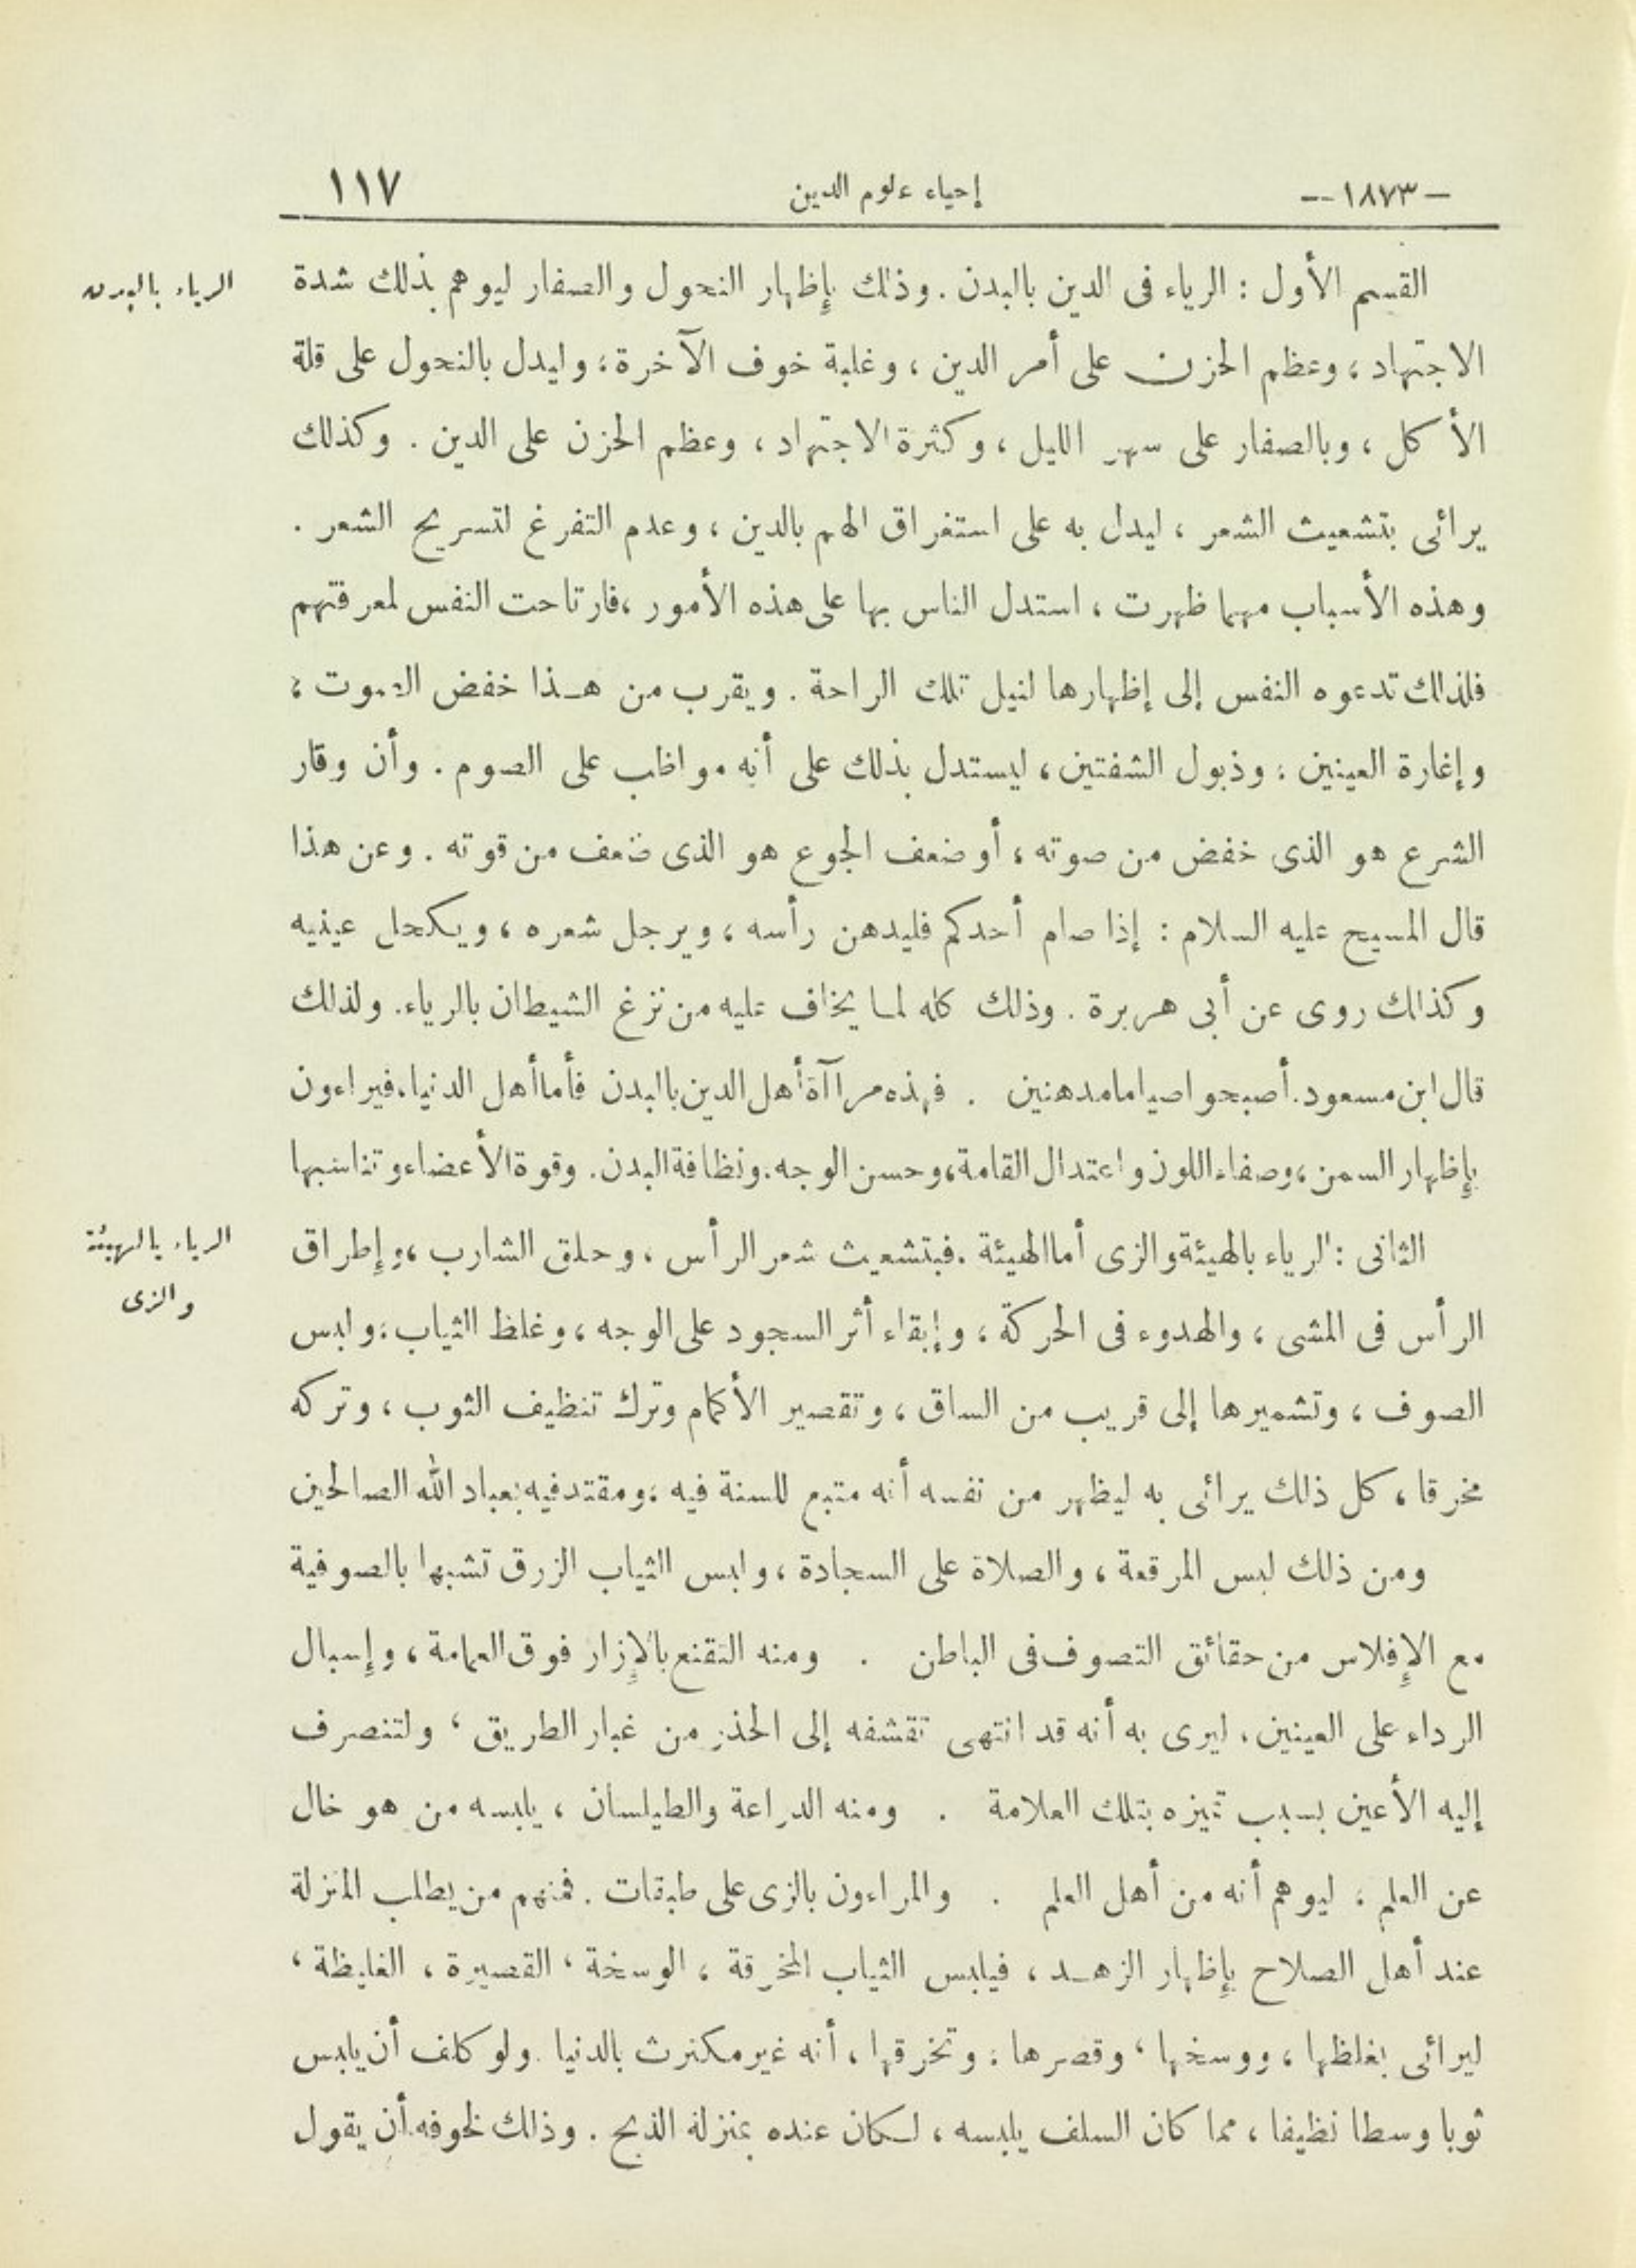 -١٨٧٣-- إحياء علوم الدين ١١٧
القسم الأول : الرياء فى الدين بالبدن . وذلك بإظهار النحول والصفار ليوهم بذلك شدة
الرياء بالبدن
الاجتهاد ، وعظم الحزن على أمر الدين ، وغلبة خوف الآخرة ؛ وليدل بالنحول على قلة
الأكل ، وبالصفار على سهر الليل ، وكثرة الاجتهاد ، وعظم الحزن على الدين . وكذلك
يرائى بتشعيث الشعر ، ليدل به على استغراق الهم بالدين ، وعدم التفرغ لتسريح الشعر .
وهذه الأسباب مهما ظهرت ، استدل الناس بها على هذه الأمور ، فارتاحت النفس لمعرفتهم
فلذلك تدعوه النفس إلى إظهارها لنيل تلك الراحة . ويقرب من هـذا خفض الصوت ،
وإغارة العينين ؛ وذبول الشفتين ، ليستدل بذلك على أنه مواظب على الصوم . وأن وقار
الشرع هو الذى خفض من صوته ، أو ضعف الجوع هو الذى ضعف من قوته . وعن هذا
قال المسيح عليه السلام : إذا صام أحدكم فليدهن رأسه ، ويرجل شعره ، ويكحل عينيه
وكذلك روى عن أبى هريرة . وذلك كله لما يخاف عليه من نزغ الشيطان بالرياء. ولذلك
قال ابن مسعود. أصبحوا صياما مدهنين . فهذه مراآة أهل الدين بالبدن فأما أهل الدنيا، فيراءون
بإظهار السمن ، وصفاء اللون واعتدال القامة ، وحسن الوجه. ونظافة البدن. وقوة الأعضاء وتناسبها
الثانى : الرياء بالهيئة والزى أما الهيئة . فبتشعيث شعر الرأس ، وحلق الشارب ، وإطراق
الرياء بالهيئة
والزى
الرأس فى المشى ، والهدوء فى الحركة ، وإبقاء أثر السجود على الوجه ، وغلظ الثياب ؛ ولبس
الصوف ، وتشميرها إلى قريب من الساق ، وتقصير الأكمام وترك تنظيف الثوب ، وتركه
مخرقا ، كل ذلك يرائى به ليظهر من نفسه أنه متبع للسنة فيه ؛ ومقتد فيه بعباد الله الصالحين
ومن ذلك لبس المرقعة ، والصلاة على السجادة ، ولبس الثياب الزرق تشبها بالصوفية
مع الإفلاس من حقائق التصوف فى الباطن . ومنه التقنع بالإزار فوق العمامة ، وإسبال
الرداء على العينين ، ليرى به أنه قد انتهى تقشفه إلى الحذر من غبار الطريق ، ولتنصرف
إليه الأعين بسبب تميزه بتلك العلامة . ومنه الدراعة والطيلسان ، يلبسه من هو خال
عن العلم ، ليوهم أنه من أهل العلم . والمراءون بالزى على طبقات . فمنهم من يطلب المنزلة
عند أهل الصلاح بإظهار الزهـد ، فيلبس الثياب المخرقة ، الوسخة ، القصيرة ، الغليظة ،
ليرائى بغلظها ، ووسخها ، وقصرها ؛ وتخرقها ، أنه غير مكترث بالدنيا . ولو كلف أن يلبس
ثوبا وسطا نظيفا ، مما كان السلف يلبسه ، لكان عنده بمنزلة الذبح . وذلك لخوفه أن يقول